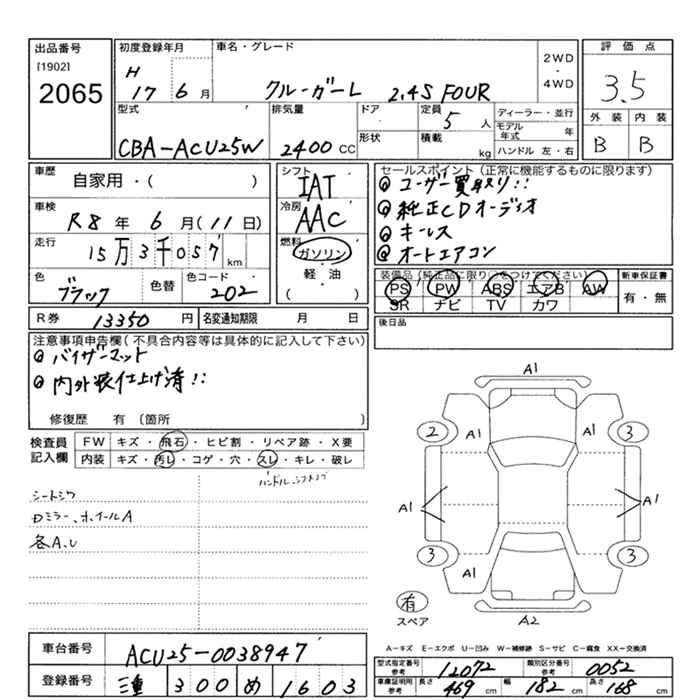 出品番号
[1902]
2065
初度登録年月
H
17 6 月
車名・グレード
クルーガーL 2.4S FOUR
2WD
・
4WD
評価点
3.5
外装 内装
B B
型式
CBA-ACU25W
排気量
2400 cc
ドア
形状
定員
5 人
積載
kg
ディーラー・並行
モデル年式 年
ハンドル 左・右
車歴
自家用・( )
車検
R8 年 6 月(11日)
走行
15万3千057 km
色
ブラック
色替
色コード
202
シフト
IAT
冷房
AAC
燃料
ガソリン
軽・油
( )
セールスポイント(正常に機能するものに限ります)
◎ユーザー買取り!!
◎純正CDオーディオ
◎キーレス
◎オートエアコン
装備品(純正品に限り○をつけて下さい)
PS PW ABS エアB AW
SR ナビ TV カワ
新車保証書
有・無
R券 13350 円
名変通知期限 月 日
後日品
注意事項申告欄(不具合内容等は具体的に記入して下さい)
◎バイザーマット
◎内外装仕上げ済!!
修復歴 有 〔箇所 〕
検査員
記入欄
FW キズ・飛石・ヒビ割・リペア跡・X要
内装 キズ・汚レ・コゲ・穴・スレ・キレ・破レ
シートシワ
Dミラー、ホイールA
各A.U
A1
2 A1 A1 3
A1 A1
3 A1 3
有
スペア
A2
A-キズ E-エクボ U-凹み W-補修跡 S-サビ C-腐食 XX-交換済
車台番号
ACU25-0038947
登録番号
三重 300 め 1603
型式指定番号
参考
12072
類別区分番号
参考
0052
車庫証明用
参考
長さ 469 cm 幅 182 cm 高さ 168 cm